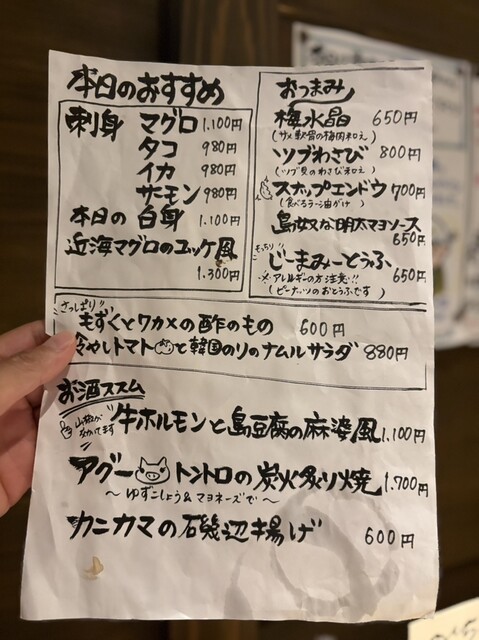 本日のおすすめ
刺身 マグロ 1.100円
タコ 980円
イカ 980円
サーモン 980円
本日の白身 1.100円
近海マグロのユッケ風
1.300円
おつまみ
梅水晶 650円
(サメ軟骨の梅肉和え)
ツブわさび 800円
(ツブ貝のわさび和え)
スナップエンドウ 700円
(食べるラー油がけ)
島奴な明太マヨソース
650円
もっちり
じーまみーとうふ 650円
※アレルギーの方注意!!
(ピーナッツのおとうふです)
さっぱり
もずくとワカメの酢のもの 600円
冷やしトマトと韓国のりのナムルサラダ 880円
お酒ススム
山椒が
牛ホルモンと島豆腐の麻婆風 1.100円
アグートントロの炭火炙り焼 1.700円
〜ゆずこしょう&マヨネーズで〜
カニカマの磯辺揚げ 600円